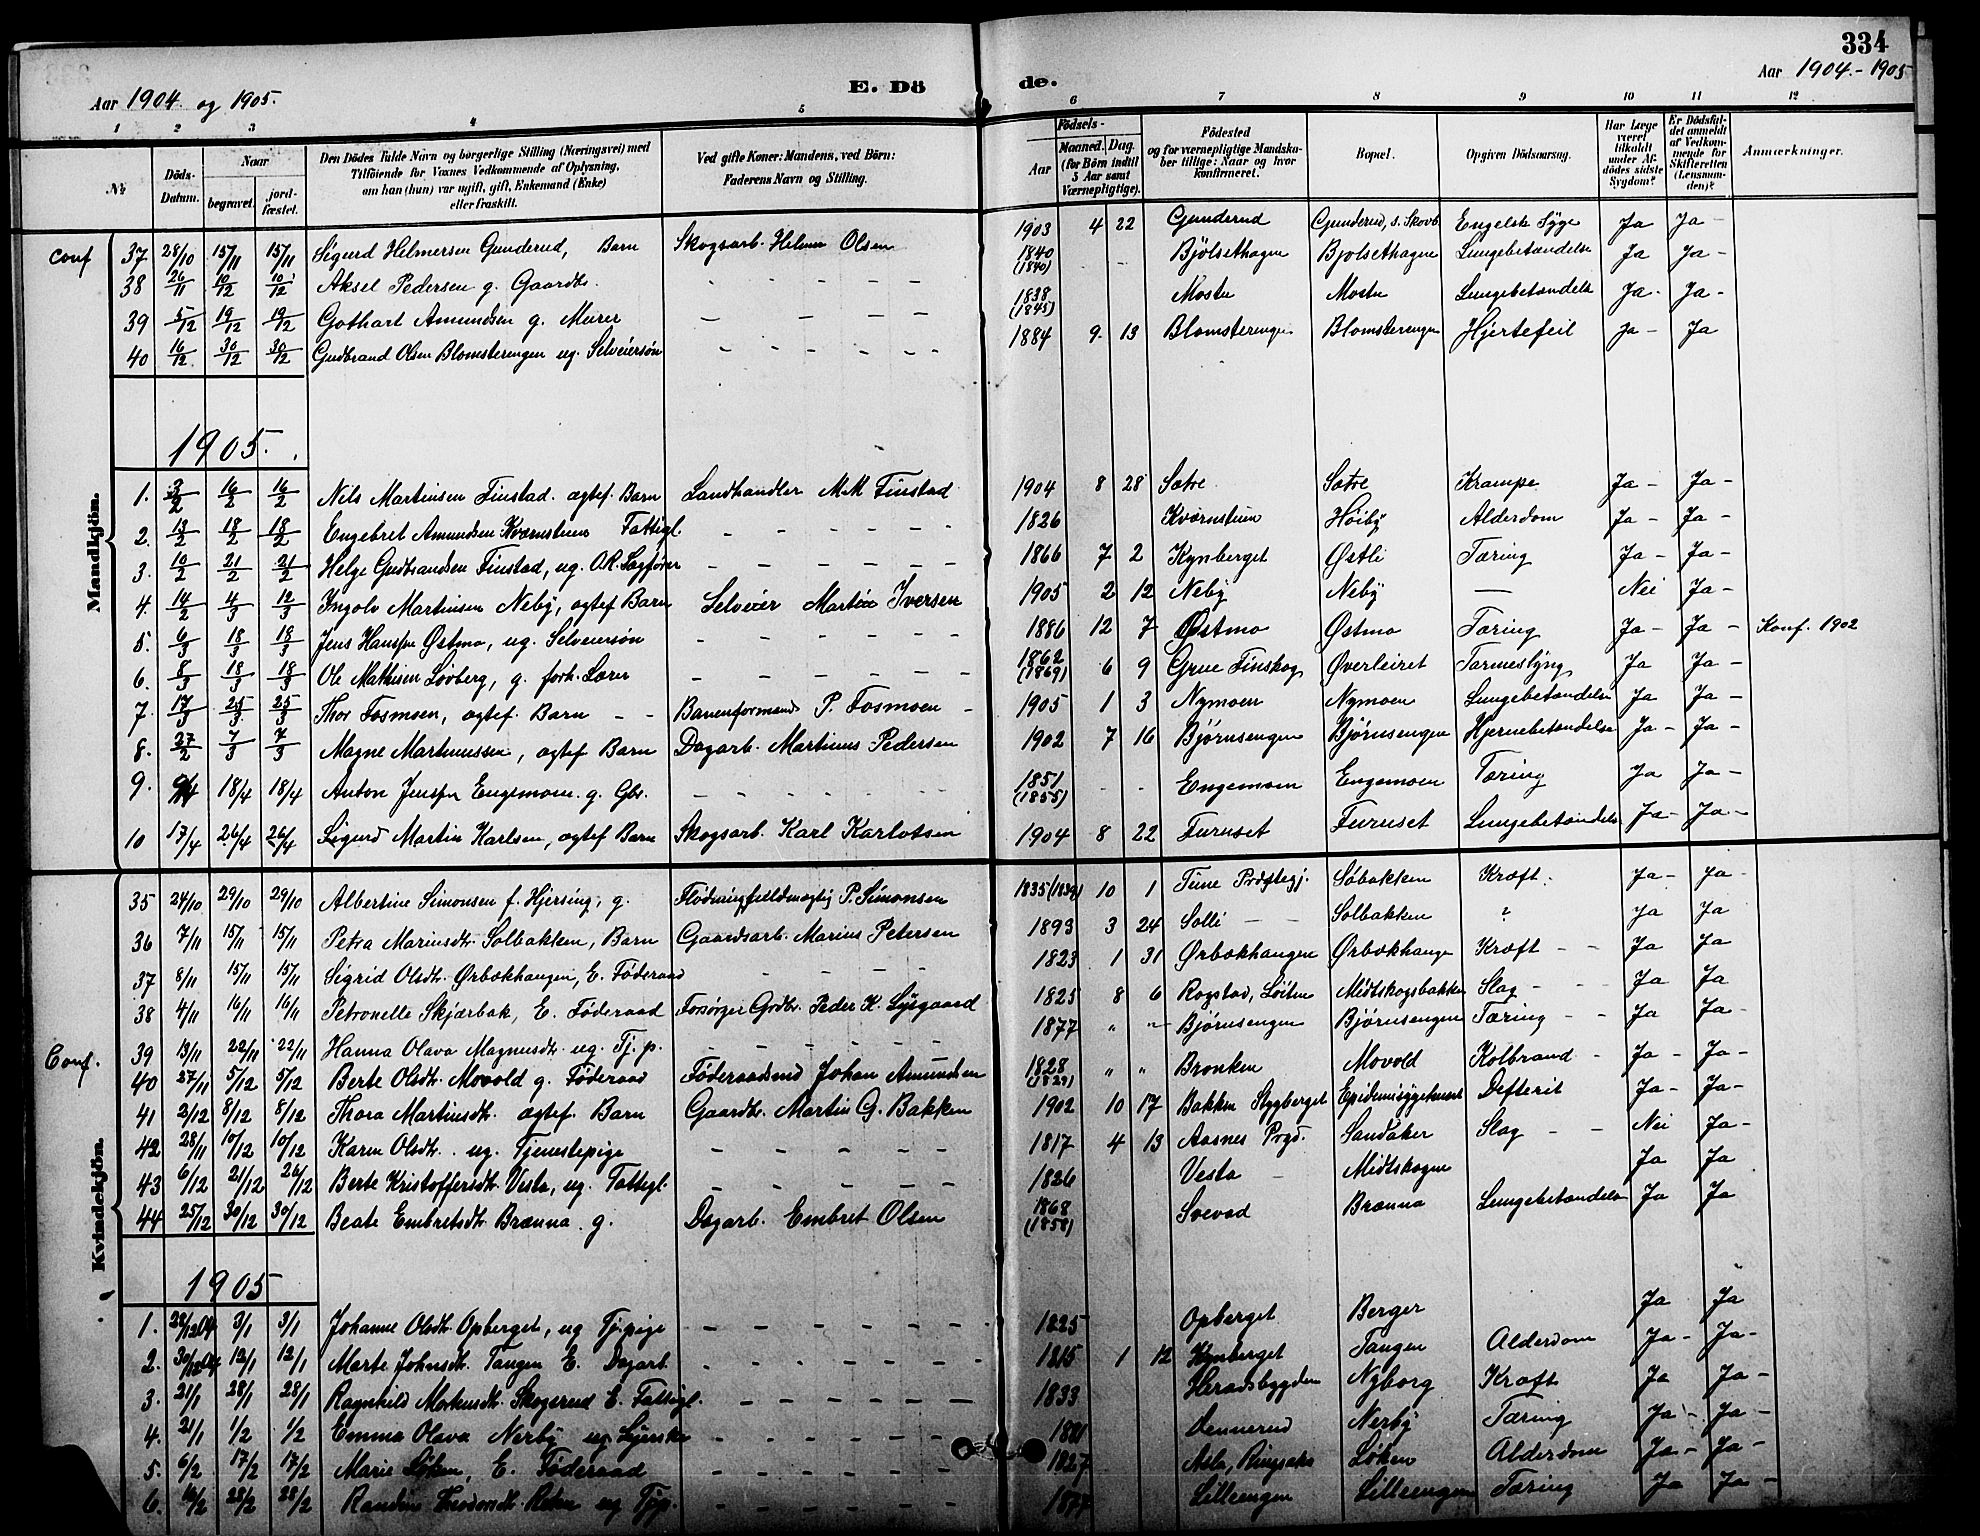 334
Aar 1904 og 1905.
E. Döde.
Aar 1904 - 1905
1 2 3 4 5 6 7 8 9 10 11 12
No
Döds-Datum.
Naar
begravet.
jordfæstet.
Den Dödes fulde Navn og borgerlige Stilling (Næringsvei) med
Tilföiende for Voxnes Vedkommende af Oplysning,
om han (hun) var ugift, gift, Enkemand (Enke)
eller fraskilt.
Ved gifte Koner: Mandens, ved Börn:
Faderens Navn og Stilling.
Födsels-
Aar
Maaned. Dag.
(for Börn indtil 5 Aar samt Værnepligtige).
Födested
og for værnepligtige Mandskaber tillige: Naar og hvor konfirmeret.
Bopæl.
Opgiven Dödsaarsag.
Har Læge været tilkaldt under Afdödes sidste Sygdom?
Er Dödsfaldet anmeldt af Vedkommende for Skifteretten (Lensmanden)?
Anmærkninger.
Mandkjön.
Conf 37 28/10 15/11 15/11 Sigurd Helmersen Gunderud, Barn Skogsarb. Helmer Olsen 1903 4 22 Gunderud Gunderud, s. Skovb. Engelsk Syge Ja Ja -
38 26/11 10/12 10/12 Aksel Pedersen g. Gaardbr. 1840 (1840) Bjölsethagen Bjolsethagen Lungebetændelse Ja Ja -
39 5/12 19/12 19/12 Gothart Amundsen g. Murer 1838 (1845) Mostu Mostu Lungebetændelse Ja - Ja -
40 16/12 30/12 30/12 Gudbrand Olsen Blomsterengen ug. Selveiersön 1884 9. 13 Blomsterengen Blomsterengen Hjertefeil Ja - Ja
1905.
1. 3/2 16/2 16/2 Nils Martinsen Finstad. ægtef. Barn Landhandler M. M Finstad 1904 8 28 Sætre Sætre Krampe Ja - Ja -
2. 13/2 18/2 18/2 Engebret Amundsen Kværnstuen Fattigl. 1826 Kværnstuen Høiby Alderdom Ja - Ja -
3. 10/2 21/2 21/2 Helge Gudbrandsen Finstad, ug. O.R. Sagfører 1866 7 2 Kynberget Østli Tæring Ja - Ja -
4. 14/2 4/3 12/3 Ingolv Martinsen Neby, ægtef Barn Selveier Martin Iversen 1905 2 12 Neby Neby — Nei Ja -
5. 6/3 18/3 18/3 Jens Hanssen Østmo, ug. Selveiersön 1886 12 7 Østmo Østmo Tæring Ja - Ja - Konf. 1902
6. 8/3 18/3 18/3 Ole Mathisen Løvberg, g. forh. Lærer 1862 (1869) 6 9 Grue Finskog Øverleiret Tarmeslyng Ja Ja -
7. 17/3 25/3 25/3 Thor Fosmoen, ægtef. Barn Baneformand P. Fosmoen 1905 1 3 Nymoen Nymoen Lungebetændelse Ja Ja -
8. 27/2 7/3 7/3 Magne Martinussen, ægtef Barn Dagarb. Martinus Pedersen 1902 7 16 Bjørnsengen Bjørnsengen Hjernebetændelse Ja - Ja -
9. 9/4 18/4 18/4 Anton Jenssen Engemoen. g. Gbr. 1851 (1855) Engemoen Engemoen Tæring Ja Ja -
10 17/4 26/4 26/4 Sigurd Martin Karlsen, ægtef Barn Skogsarb. Karl Karlotsen 1904 8 22 Furuset Furuset Lungebetændelse Ja - Ja -
Kvindekjön.
35 24/10 29/10 29/10 Albertine Simonsen f. Hjersing, g. Flødningfuldmægtig P. Simonsen 1835 (1839) 10 1 Tune Præstegj. Söbakken Kræft. Ja - Ja -
36 7/11 15/11 15/11 Petra Mariusdtr. Solbakken, Barn Gaardsarb. Marius Petersen 1893 3 24 Solli Solbakken ? Ja Ja
37 8/11 15/11 15/11 Sigrid Olsdtr. Ørbækhaugen, E. Føderaad 1823 1 31 Ørbækhaugen Ørbækhaugen Kræft Ja Ja
38 4/11 16/11 16/11 Petronelle Skjærbæk, E. Føderaad Forsørger Grdbr. Peder K. Lysgaard 1825 8 6 Rogstad, Løiten Midtskogsbakken Slag Ja Ja
39 13/11 22/11 22/11 Hanna Olava Magnusdtr. ug. Tj. p. 1877 " " Bjørnsengen Bjørnsengen Tæring Ja Ja -
Conf. 40 27/11 5/12 5/12 Berte Olsdtr. Movold g. Føderaad Føderaadsmd Johan Amundsen 1828 (1829) " " Bronken Movold Kolbrand Ja - Ja -
41 2/12 8/12 8/12 Thora Martinsdtr. ægtef. Barn Gaardbr. Martin G. Bakken 1902 10 17 Bakken Stygberget Epidemisygehuset Defterit Ja - Ja -
42 28/11 10/12 10/12 Karen Olsdtr. ug. Tjenestepige 1817 4 13 Aasnes Prgd. Sandaker Slag Nei Ja -
43 6/12 21/12 26/12 Berte Kristoffersdtr. Vesta, ug. Fattigl. 1826 Vesta Midtskogen Ja Ja
44 25/12 30/12 30/12 Beate Embretsdtr. Brænna. g. Dagarb. Embret Olsen 1868 (1858) Svevad Brænna Lungebetændelse Ja Ja
1905
1. 28/12 04 3/1 3/1 Johanne Olsdtr. Opberget, ug Tj.pige 1825 Opberget Berger Ja Ja
2. 30/12 04 12/1 12/1 Marte Johnsdtr. Tangen E. Dagarb. 1815 1 12 Kynberget Tangen Alderdom Ja - Ja -
3. 21/1 28/1 28/1 Ragnhild Markusdtr. Skogsrud E. Fattigl. 1833 Heradsbygden Nyborg Kræft Ja Ja -
4. 21/1 1/2 1/2 Emma Olava Nerby ug Nerby Tæring Ja - Ja -
5. 6/2 17/2 17/2 Marie Løken, E. Føderaad 1827 Løken Alderdom Ja - Ja -
6. 28/2 28/2 ug 1877 Lilleengen Lilleengen Tæring Ja Ja -